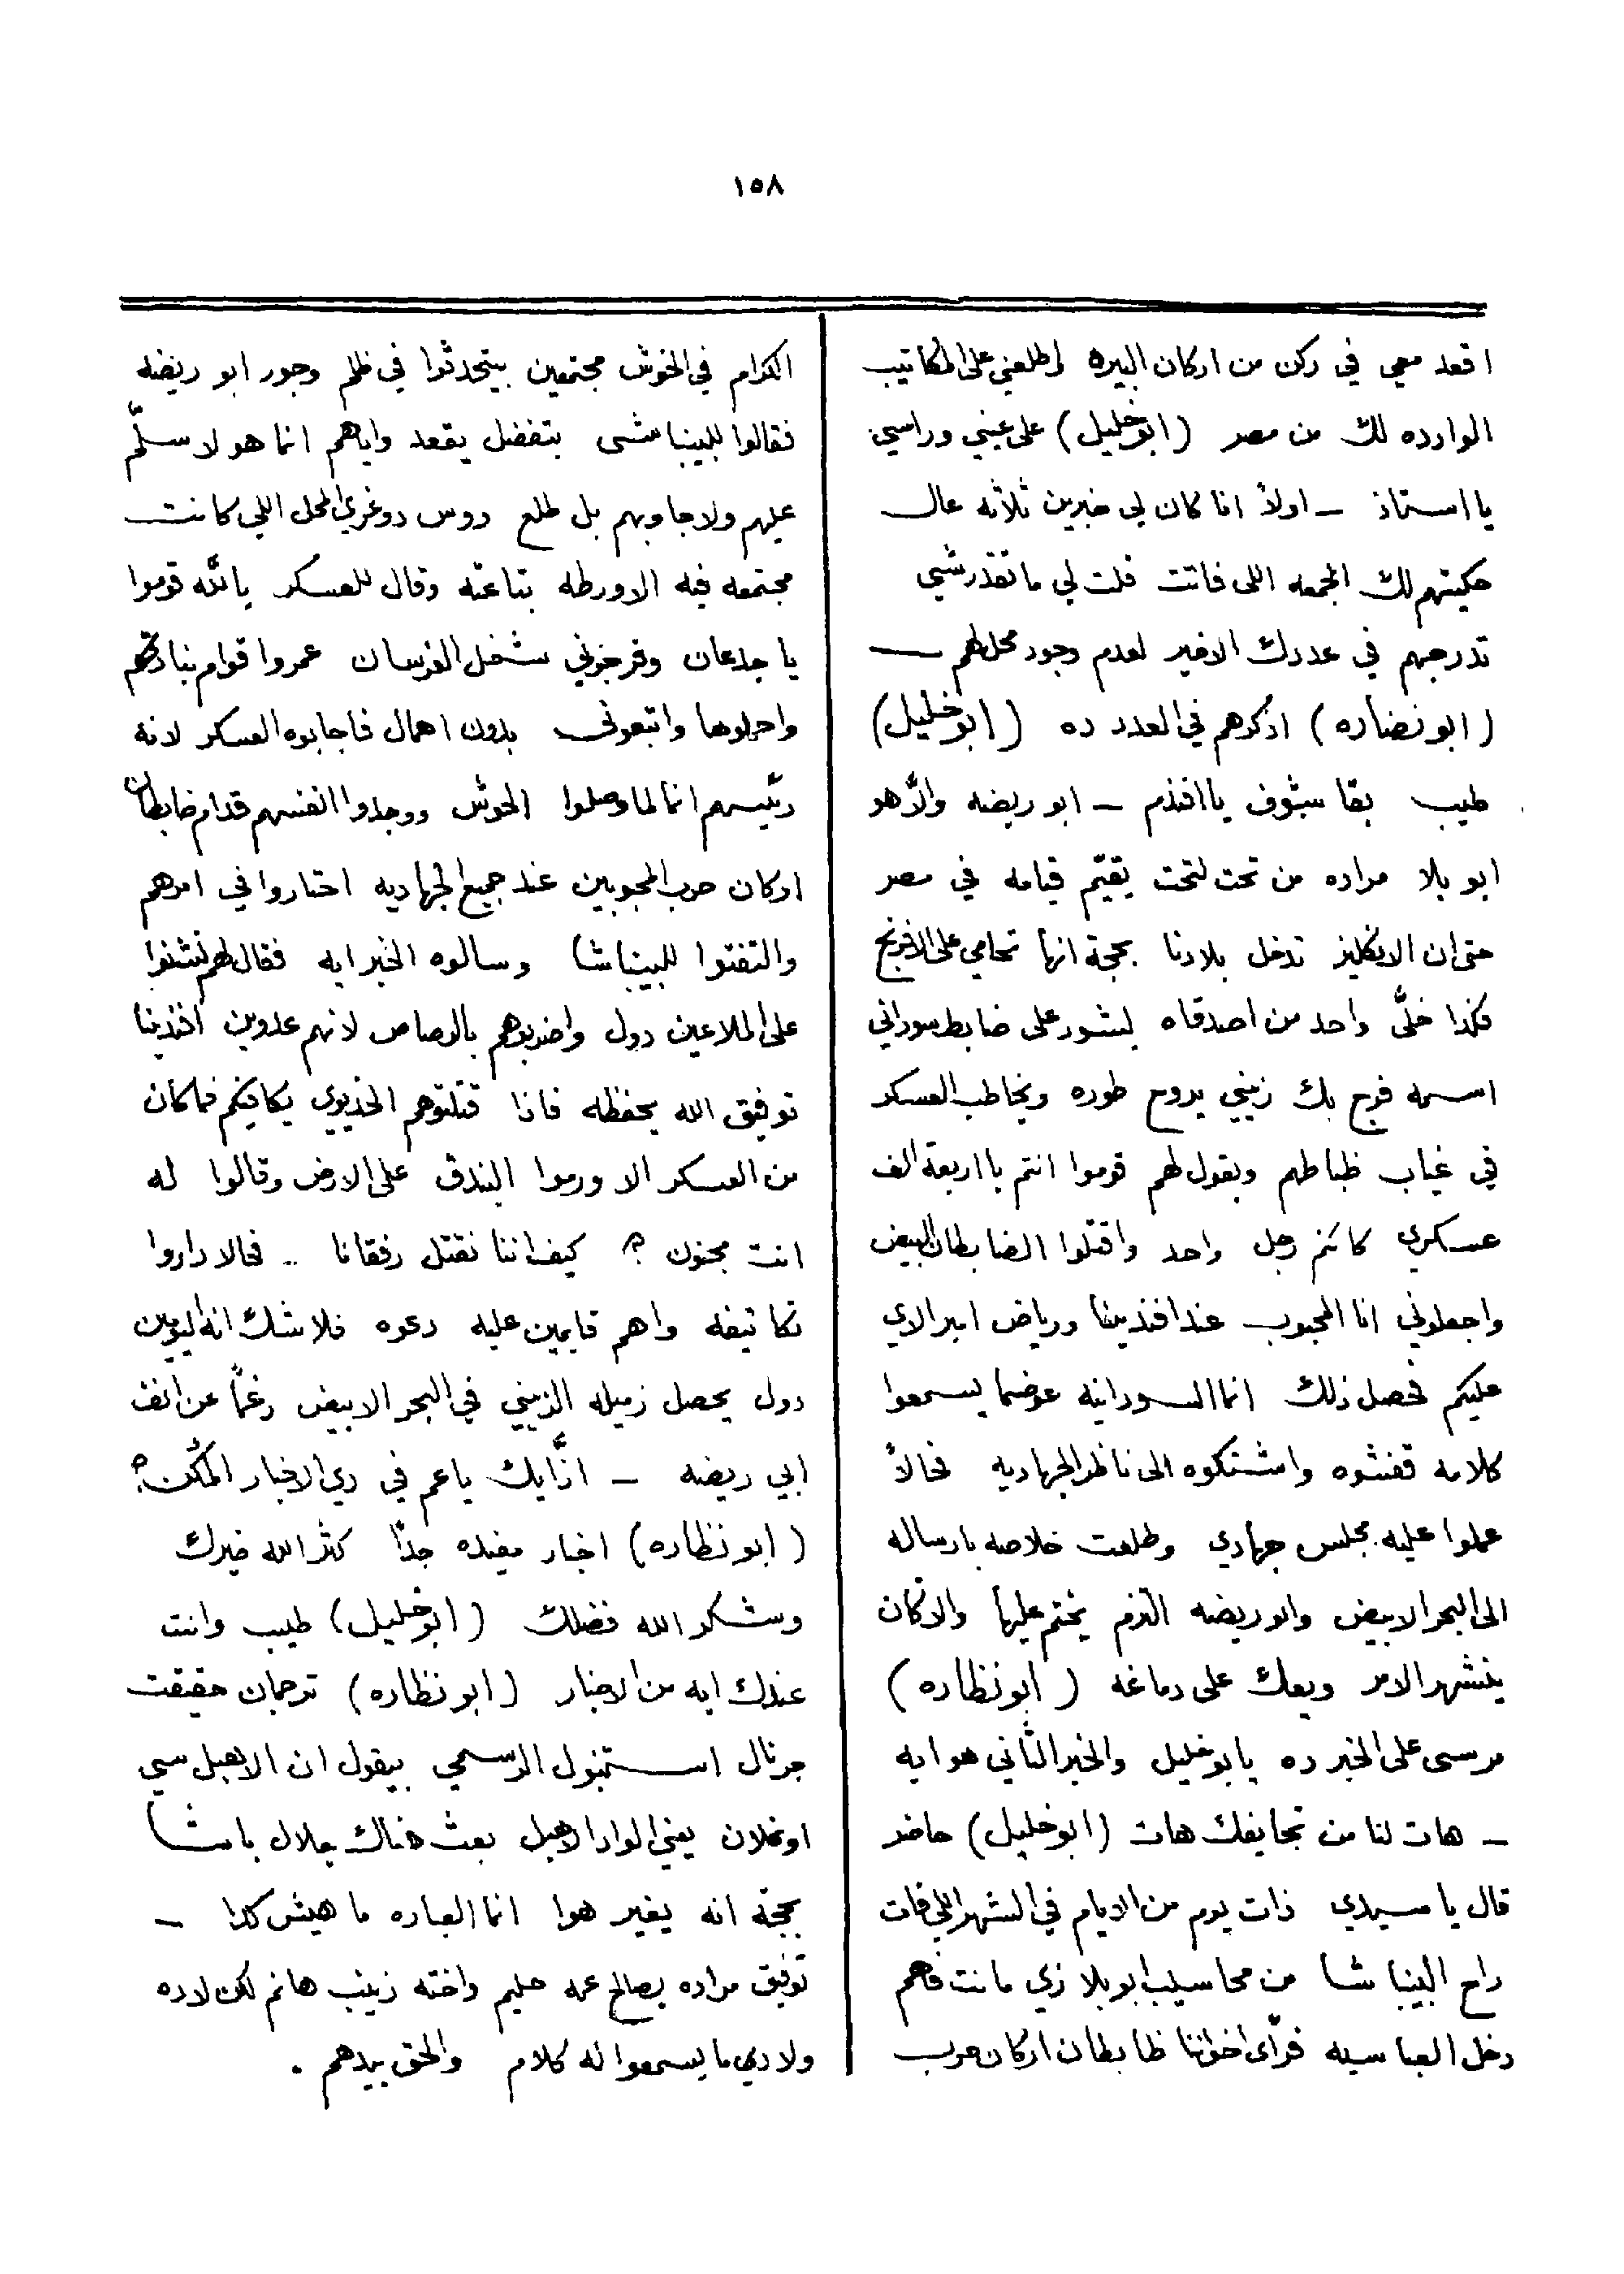 ١٥٨
اقعد معي في ركن من اركان البيره واطلعني على المكاتيب
الوارده لك من مصر (ابو خليل) على عيني وراسي
يا استاذ ــ اولاً انا كان لي خبرين ثلاثه عال
حكيتهم لك الجمعه اللى فاتت قلت لي ما تقدرشي
تدرجهم في عددك الاخير لعدم وجود محل لهم ــ
(ابو نضاره) اذكرهم في العدد ده (ابو خليل)
طيب بقا بشوف يا افندم ــ ابو ريضه والّا هو
ابو بلا مراده من تحت لتحت يقيّم قيامه في مصر
حتى ان الانكليز تدخل بلادنا بحجة انها تحامي على الافرنج
فكذا خلّى واحد من اصدقاه ليشور على ضابط سوداني
اسمه فرج بك زيني يروح طوره ويخاطب العسكر
في غياب ظباطهم ويقول لهم قوموا انتم يا اربعة الف
عسكري كانكم رجل واحد واقتلوا الضابطان البيض
واجعلوني انا المحبوب عند افندينا ورياض اميرالاي
عليكم فحصل ذلك انما السودانيه عوضما يسمعوا
كلامه قفشوه واشتكوه الى ناظر الجهاديه فحالاً
عملوا عليه مجلس جهادي وطلعت خلاصه بارساله
الى البحر الابيض وابو ريضه التزم يختم عليها والا كان
ينشهر الامر ويعك على دماغه (ابو نظاره)
مرسى على الخبر ده يا بو خليل والخبر الثاني هو ايه
ــ هات لنا من تحايفك هات (ابو خليل) حاضر
قال يا سيدي ذات يوم من الايام في الشهر اللي فات
راح البينباشا من محاسيب ابو بلا زي ما نت فاهم
دخل العباسيه فرأى اخواننا ظابطان اركان حرب
الكرام في الحوش مجتمعين بيتحدثوا في ظلم وجور ابو ريضه
فقالوا للبينباشى يتفضل يقعد واياهم انما هو لا سلّم
عليهم ولا جاوبهم بل طلع دوس دوغري المحل اللي كانت
مجتمعه فيه الاورطه بتاعته وقال للعسكر يا لله قوموا
يا جدعان وفرجوني شغل الفرسان عمروا قوام بنادقكم
واحملوها واتبعوني بدون اهمال فاجابوه العسكر لانه
رئيسهم انما لما وصلوا الحوش ووجدوا انفسهم قدام ضابطان
اركان حرب المحبوبين عند جميع الجهاديه احتاروا في امرهم
والتفتوا للبينباشا وسالوه الخبر ايه فقال لهم نشنوا
على الملاعين دول واضربوهم بالرصاص لانهم عدوين افندينا
توفيق الله يحفظه فاذا قتلتوهم الخديوي يكافيكم فما كان
من العسكر الا ورموا البندق على الارض وقالوا له
انت مجنون ؟ كيف اننا نقتل رفقانا .. فحالا داروا
تكاتيفه واهم قايمين عليه دعوه فلا شك انه اليومين
دول يحصل زميله الزيني في البحر الابيض رغماً عن انف
ابي ريضه ــ ازّايك يا عم في دي الاخبار المكن ؟
(ابو نظاره) اخبار مفيده جدّاً كثر الله خيرك
وشكر الله فضلك (ابو خليل) طيب وانت
عندك ايه من الاخبار (ابو نظاره) ترجمان حقيقت
جرنال استنبول الرسمي بيقول ان الاهبل سي
اوغلان يعني الواد الاهبل بعث هناك جلال باشا
بحجة انه يغير هوا انما العباره ما هيش كدا ــ
توفيق مراده يصالح عمه حليم واخته زينب هانم لكن لا ده
ولا دي ما يسمعوا له كلام والحق بيدهم .